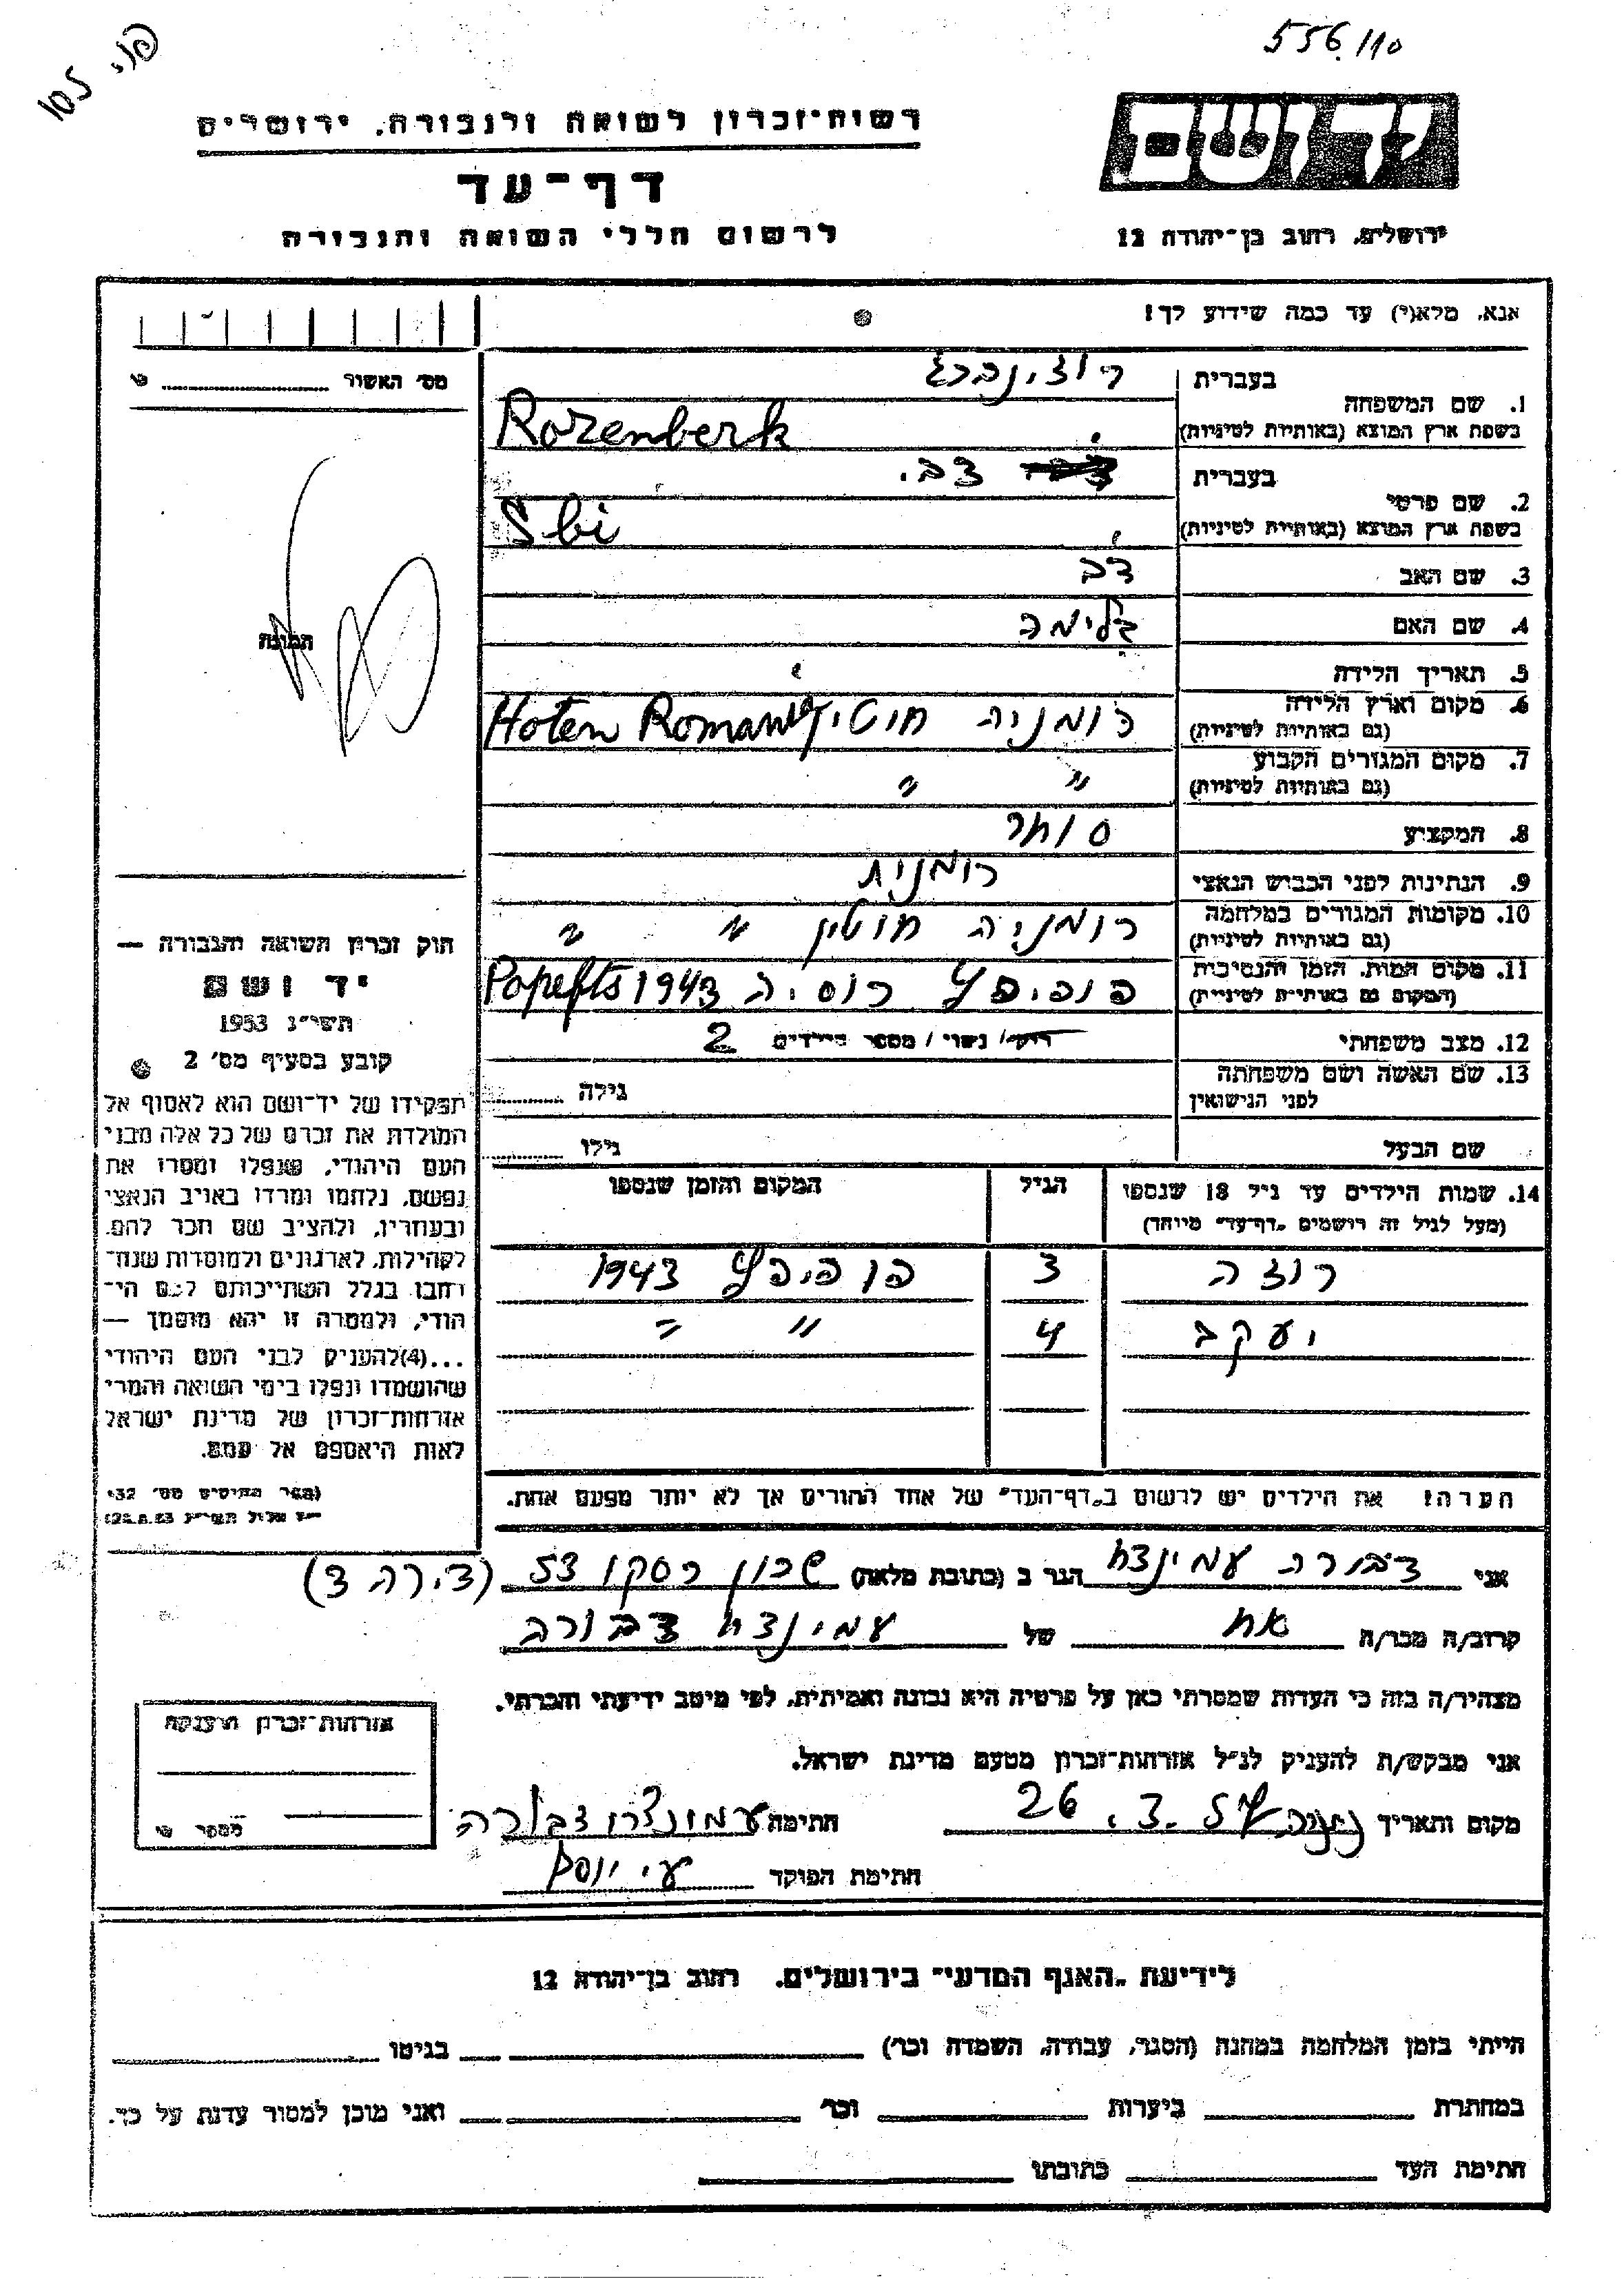 556/110
פולי 105
יד ושם
ירושלים, רחוב בן־יהודה 12
רשות־זכרון לשואה ולגבורה, ירושלים
דף־עד
לרשום חללי השואה והגבורה
אנא, מלא(י) עד כמה שידוע לך!
מס' האשור
בעברית רוזינברג
1. שם המשפחה
בשפת ארץ המוצא (באותיות לטיניות) Rozenberk
בעברית צבי.
2. שם פרטי
בשפת ארץ המוצא (באותיות לטיניות) Sbi
3. שם האב דב
4. שם האם בלימה
5. תאריך הלידה
6. מקום וארץ הלידה
(גם באותיות לטיניות) רומניה חוטין Hoten Romania
7. מקום המגורים הקבוע
(גם באותיות לטיניות) " "
8. המקצוע סוחר
9. הנתינות לפני הכבוש הנאצי רומנית
10. מקומות המגורים במלחמה
(גם באותיות לטיניות) רומניה חוטין " "
11. מקום המות, הזמן והנסיבות
(המקום גם באותיות לטיניות) פופיפץ רוסיה 1943 Popefts
12. מצב משפחתי רווק / נשוי / מספר הילדים 2
13. שם האשה ושם משפחתה
לפני הנישואין גילה
שם הבעל גילו
14. שמות הילדים עד גיל 18 שנספו הגיל המקום והזמן שנספו
(מעל לגיל זה רושמים "דף־עד" מיוחד)
רוזה 3 פופיפץ 1943
יעקב 4 " "
הערה! את הילדים יש לרשום ב"דף־העד" של אחד ההורים אך לא יותר מפעם אחת.
התמונה
חוק זכרון השואה והגבורה —
יד ושם
תשי"ג 1953
קובע בסעיף מס' 2
תפקידו של יד־ושם הוא לאסוף אל
המולדת את זכרם של כל אלה מבני
העם היהודי, שנפלו ומסרו את
נפשם, נלחמו ומרדו באויב הנאצי
ובעוזריו, ולהציב שם וזכר להם,
לקהילות, לארגונים ולמוסדות שנח־
רבו בגלל השתייכותם לעם הי־
הודי, ולמטרה זו יהא מוסמך —
...(4) להעניק לבני העם היהודי
שהושמדו ונפלו בימי השואה והמרי
אזרחות־זכרון של מדינת ישראל
לאות היאספם אל עמם.
(ספר החוקים מס' 132
אני דבורה עמינצח הגר ב (כתובת מלאה) שכון רסקו 53 (דירה 3)
קרוב/ה מכר/ה אח של עמינצח דבורה
מצהיר/ה בזה כי העדות שמסרתי כאן על פרטיה היא נכונה ואמיתית, לפי מיטב ידיעתי והכרתי.
אני מבקש/ת להעניק לנ"ל אזרחות־זכרון מטעם מדינת ישראל.
מקום ותאריך נתניה 26.3.57 חתימה דבורה
חתימת הפוקד
אזרחות־זכרון הוענקה
מספר
לידיעת "האגף המדעי" בירושלים, רחוב בן־יהודה 12
הייתי בזמן המלחמה במחנה (הסגר, עבודה, השמדה וכו') בגיטו
במחתרת ביערות וכו' ואני מוכן למסור עדות על כך.
חתימת העד כתובתו